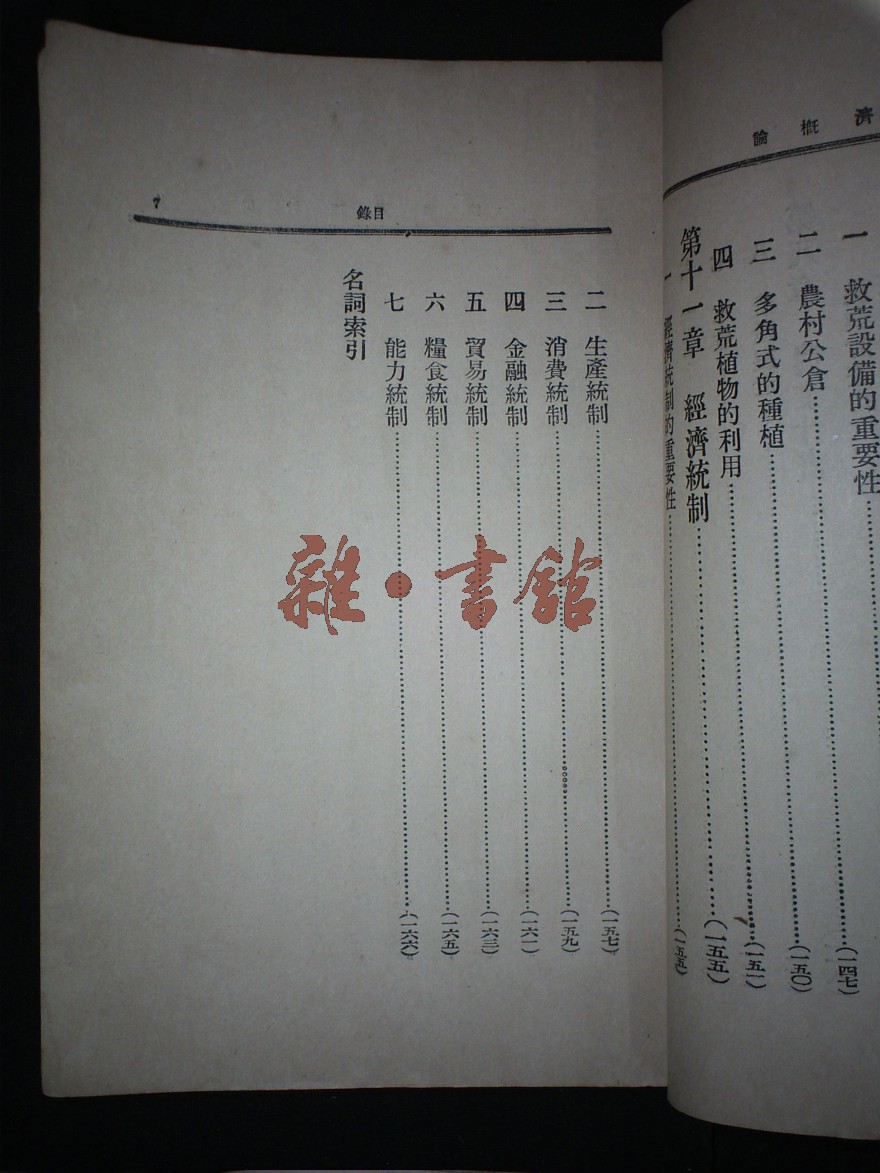 濟概論
一 救荒設備的重要性……(一四七)
二 農村公倉……(一五〇)
三 多角式的種植……(一五一)
四 救荒植物的利用
第十一章 經濟統制……(一五五)
一 經濟統制的重要性……(一五五)
目錄
7
二 生產統制……(一五七)
三 消費統制……(一五九)
四 金融統制……(一六一)
五 貿易統制……(一六三)
六 糧食統制……(一六五)
七 能力統制……(一六六)
名詞索引
雜·書館